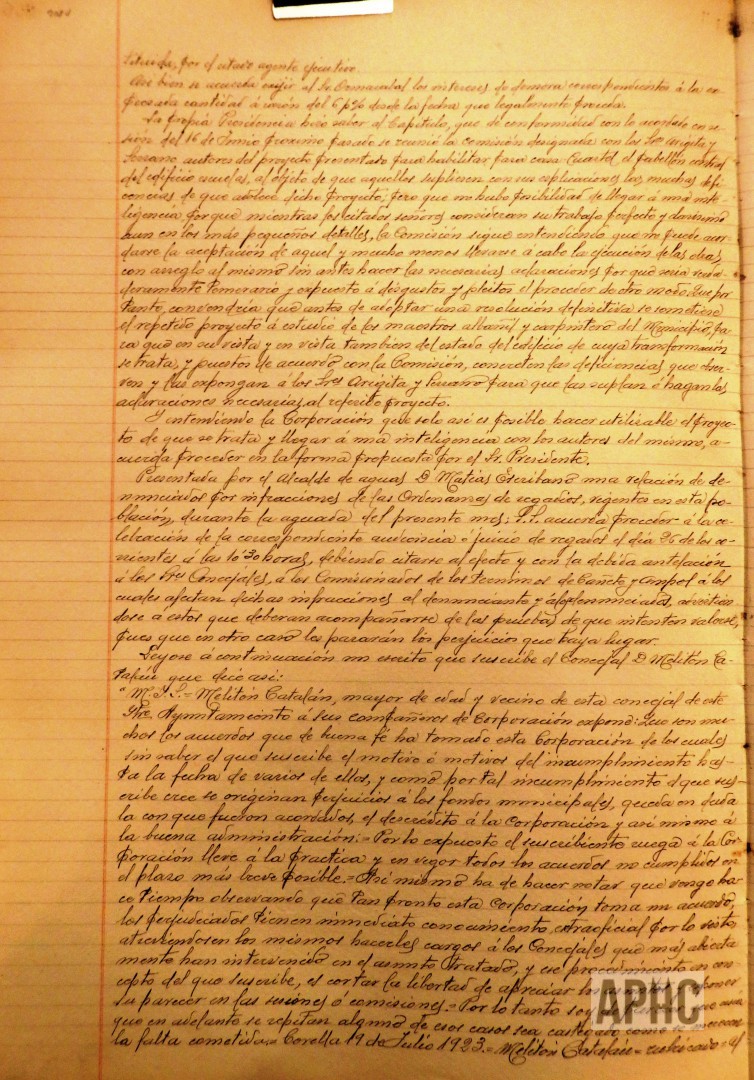 por el citado agente ejecutivo.
Así bien se acuerda exijir al Sr. los intereses de demora correspondientes á la ex-
presada cantidad á razón del 6 p% desde la fecha que legalmente proceda.
La propia Presidencia hizo saber al Capítulo, que de conformidad con lo acordado en se-
sión del 16 de Junio próximo pasado se reunió la comisión designada con los Sres Argita y
Serrano autores del proyecto presentado para habilitar para casa Cuartel el pabellón central
del edificio escuelas, al objeto de que aquellos supliesen con sus esplicaciones las muchas defi-
ciencias de que adolece dicho proyecto, pero que no hubo posibilidad de llegar á una inte-
ligencia porque mientras los citados señores consideran su trabajo perfecto y
aun en los más pequeños detalles, la Comisión sigue entendiendo que no puede acor-
darse la aceptación de aquel y mucho menos llevarse á cabo la ejecución de las obras
con arreglo al mismo sin antes hacer las necesarias aclaraciones por que sería verda-
deramente temerario y expuesto á disgustos y pleitos el proceder de otro modo. Que por
tanto, convendría que antes de adoptar una resolución definitiva se sometiese
el repetido proyecto á estudio de los maestros albañil y carpintero del Municipio pa-
ra que en su vista y en vista tambien del estado del edificio de cuya transformación
se trata, y puestos de acuerdo con la Comisión, concreten las deficiencias que obser-
ven y las expongan á los Sres Argita y Serrano para que las suplan ó hagan las
aclaraciones necesarias al referido proyecto.
Y entendiendo la Corporación que solo así es posible hacer utilizable el proyec-
to de que se trata y llegar á una inteligencia con los autores del mismo, a-
cuerda proceder en la forma propuesta por el Sr. Presidente.
Presentada por el alcalde de aguas D Matías Escribano una relación de de-
nunciados por infracciones de las Ordenanzas de regadíos, vigentes en esta po-
blación, durante la aguada del presente mes; S.S. acuerda proceder á la ce-
lebración de la correspondiente audiencia ó juicio de regadíos el día 26 de los co-
rrientes á las 10'30 horas, debiendo citarse al efecto y con la debida antelación
á los Sres Concejales, á los Comisionados de los Terminos de Cañete y Campol á los
cuales afectan dichas infracciones al denunciante y á los denunciados, advirtién-
dose á estos que deberan acompañarse de las pruebas de que intenten valerse,
pues que en otro caso les pararán los perjuicios que haya lugar.
Leyose á continuación un escrito que suscribe el Concejal D. Melitón Ca-
talán que dice así:
"M.I.S.= Melitón Catalán, mayor de edad y vecino de esta concejal de este
Ilre. Ayuntamiento á sus compañeros de Corporación expone: Que son mu-
chos los acuerdos que de buena fé ha tomado esta Corporación de los cuales
sin saber el que suscribe el motivo ó motivos del incumplimiento has-
ta la fecha de varios de ellos, y como por tal incumplimiento el que sus-
cribe cree se originan perjuicios á los fondos municipales, queda en duda
la con que fueron acordados, el descrédito á la Corporación y así mismo á
la buena administración.= Por lo expuesto el suscribiente ruega á la Cor-
poración lleve á la practica y en vigor todos los acuerdos no cumplidos en
el plazo más breve posible.= Así mismo ha de hacer notar que vengo ha-
ce tiempo observando que tan pronto esta Corporación toma un acuerdo,
los perjudicados tienen inmediato conocimiento extraoficial por lo visto
atreviendosen los mismos hacerles cargos á los Concejales que mas abierta-
mente han intervenido en el asunto tratado, y ese procedimiento en con-
cepto del que suscribe, es cortar la libertad de apreciar
su parecer en las sesiones ó comisiones.= Por lo tanto
que en adelante se repitan alguno de esos casos sea castigado como
la falta cometida.= Corella 19 de Julio 1923.= Melitón Catalán= rubricado= el
APHC